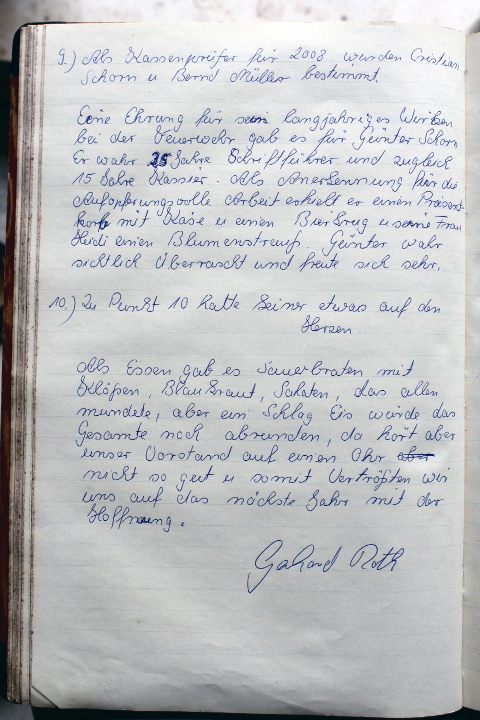 9.) Als Kassenprüfer für 2008 wurden Cristian
Schorn u Bernd Müller bestimmt.
Eine Ehrung für sein langjähriges Wirken
bei der Feuerwehr gab es für Günter Schorn
Er wahr 25 Jahre Schriftführer und zugleich
15 Jahre Kassier. Als Anerkennung für die
Aufopferungsvolle Arbeit erhielt er einen Präsent-
korb mit Käse u einen Bierkrug u seine Frau
Heidi einen Blumenstrauß. Günter wahr
sichtlich Überrascht und freute sich sehr.
10.) Zu Punkt 10 hatte keiner etwas auf den
Herzen.
Als Essen gab es Sauerbraten mit
Klößen, Blaukraut, Salaten, das allen
mundete, aber ein Schlag Eis würde das
Gesamte noch abrunden, da hört aber
unser Vorstand auf einen Ohr aber
nicht so gut u somit Vertrößten wir
uns auf das nächste Jahr mit der
Hoffnung.
Gerhard Roth